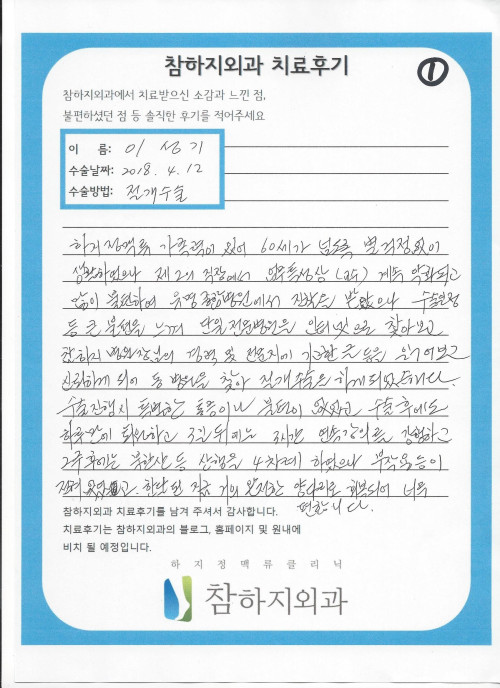 참하지외과 치료후기
①
참하지외과에서 치료받으신 소감과 느낀 점,
불편하셨던 점 등 솔직한 후기를 적어주세요
이 름: 이성기
수술날짜: 2018. 4. 12
수술방법: 절개수술
하지정맥류 가족력이 있어 60세가 넘도록 별걱정없이
생활하였으나 제2의 직장에서 업무특성상 계속 악화되고
많이 불편하여 유명종합병원에서 진찰을 받았으나 수술일정
등 큰 불편을 느껴 단일전문병원을 인터넷으로 찾아보고
참하지 병원장님의 경력 및 전문지에 기고한 글 등을 읽어보고
신뢰하게 되어 동 병원을 찾아 절개수술을 하게되었습니다.
수술진행시 특별한 통증이나 불편이 없었고 수술후에도
하루만에 퇴원하고 3일뒤에는 3시간 연속강의를 강행하고
2주후에는 북한산 등 산행을 4차례 하였으나 부작용 등이
전혀 없었고. 한달 된 지금 거의 완치된 양다리로 회복되어 너무
편합니다.
참하지외과 치료후기를 남겨 주셔서 감사합니다.
치료후기는 참하지외과의 블로그, 홈페이지 및 원내에
비치 될 예정입니다.
하지정맥류클리닉
참하지외과